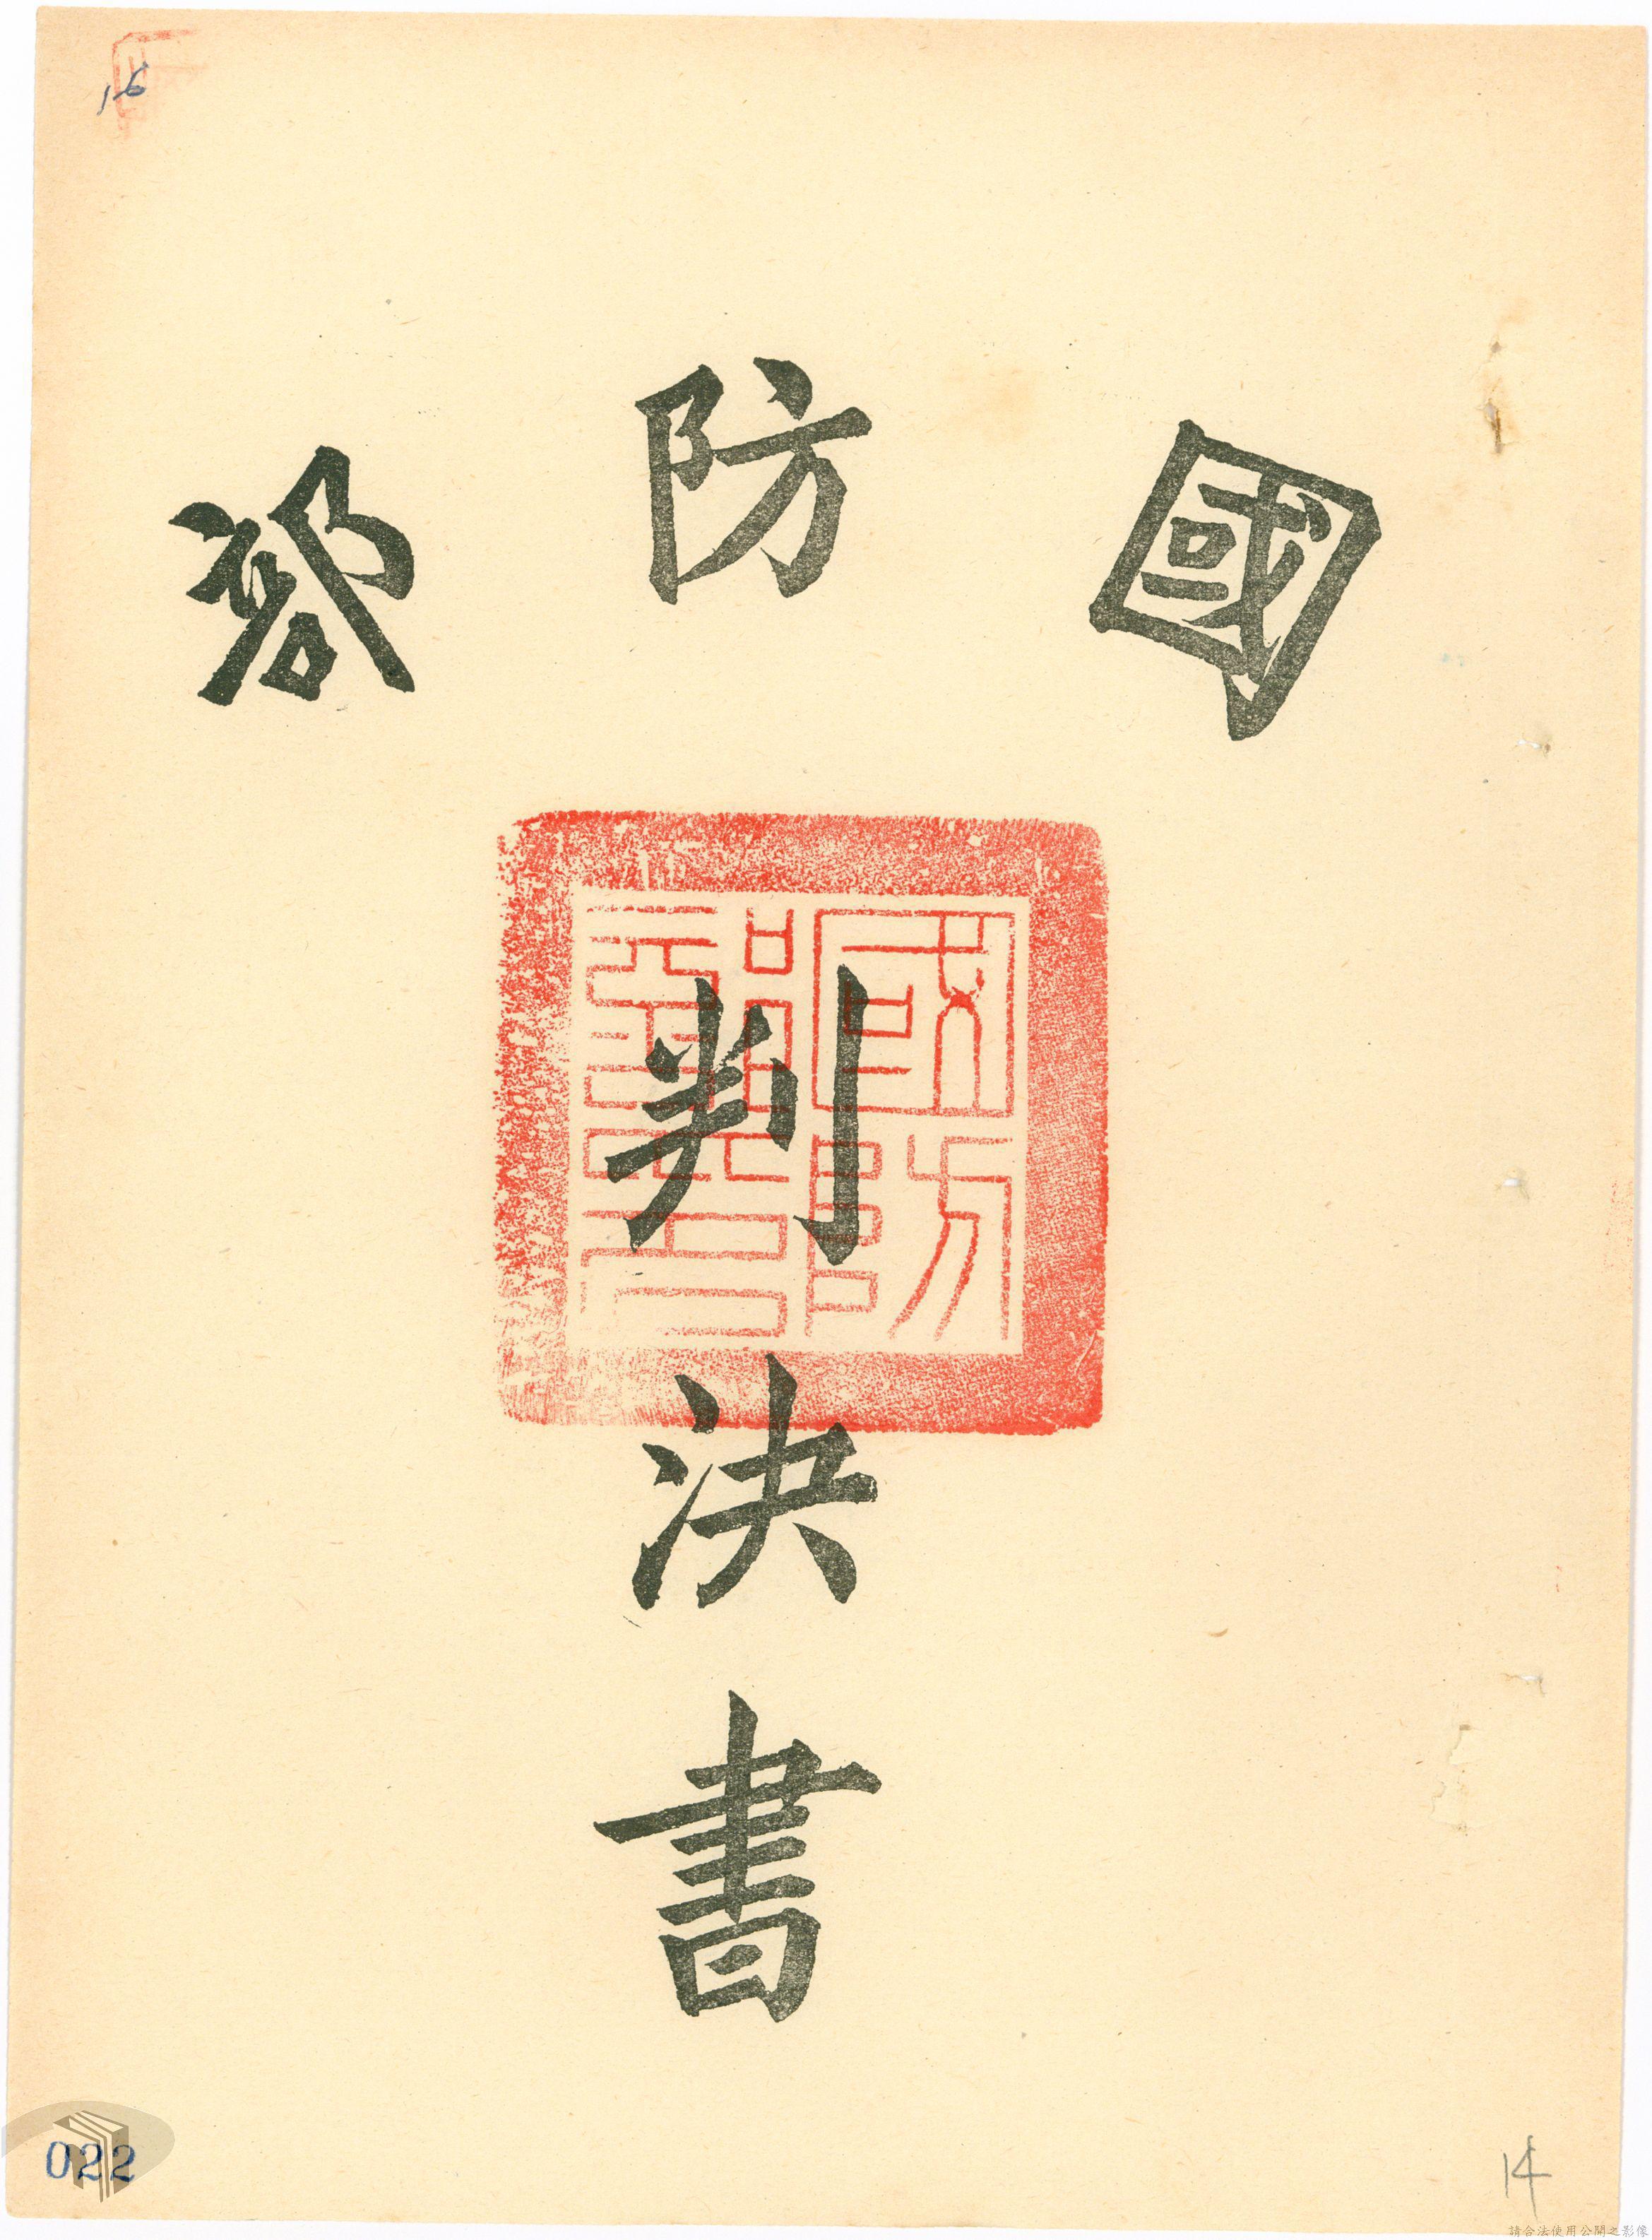 16
國防部
國防部印
判決書
022
14
請合法使用公開之影像